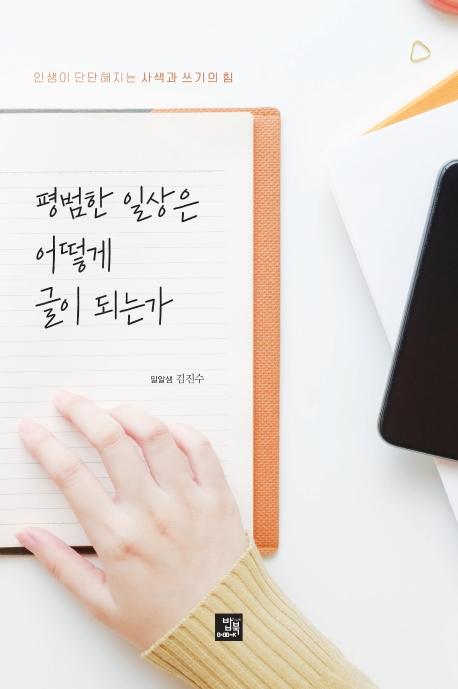 인생이 단단해지는 사색과 쓰기의 힘
평범한 일상은
어떻게
글이 되는가
밀알샘 김진수
밥북
B·OB·O·K